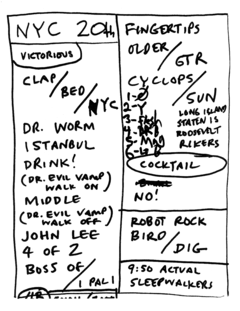 NYC 20th
VICTORIOUS
CLAP/
BED/
NYC
DR. WORM
ISTANBUL
DRINK!
(DR. EVIL VAMP
WALK ON)
MIDDLE
(DR. EVIL VAMP
WALK OFF)
JOHN LEE
4 OF 2
BOSS OF/
1 PAL 1
FINGERTIPS
OLDER/
GTR
CYCLOPS/
SUN
2-Y
LONG ISLAND
STATEN IS
ROOSEVELT
RIKERS
COCKTAIL
NO!
ROBOT ROCK
BIRD/
DIG
9:50 ACTUAL
SLEEPWALKERS